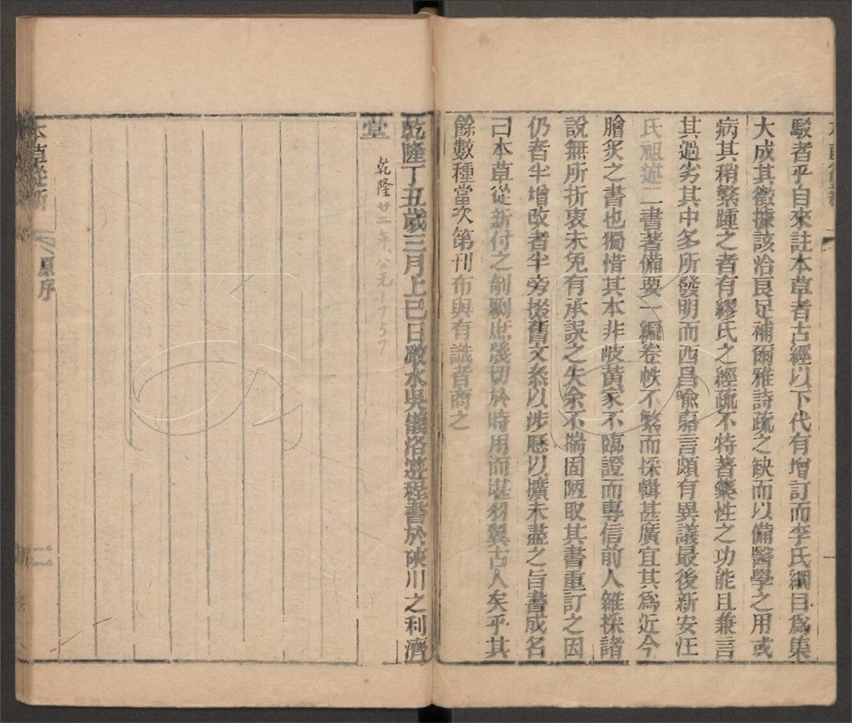 駁者乎自來註本草者古經以下代有增訂而李氏綱目爲集
大成其徵據該洽良足補爾雅詩疏之缺而以備醫學之用或
病其稍繁踵之者有繆氏之經疏不特著藥性之功能且兼言
其過劣其中多所發明而西昌喻嘉言頗有異議最後新安汪
氏祖述二書著備要一編卷帙不繁而採輯甚廣宜其爲近今
膾炙之書也獨惜其本非岐黃家不臨證而專信前人雜採諸
說無所折衷未免有承誤之失余不揣固陋取其書重訂之因
仍者半增改者半旁掇舊文叅以涉歷以擴未盡之旨書成名
曰本草從新付之剞劂庶幾切於時用而堪羽翼古人矣乎其
餘數種當次第刊布與有識者商之
乾隆丁丑歲三月上巳日澉水吳儀洛遵程書於硤川之利濟
堂
乾隆廿二年公元1757
本草從新
原序
二